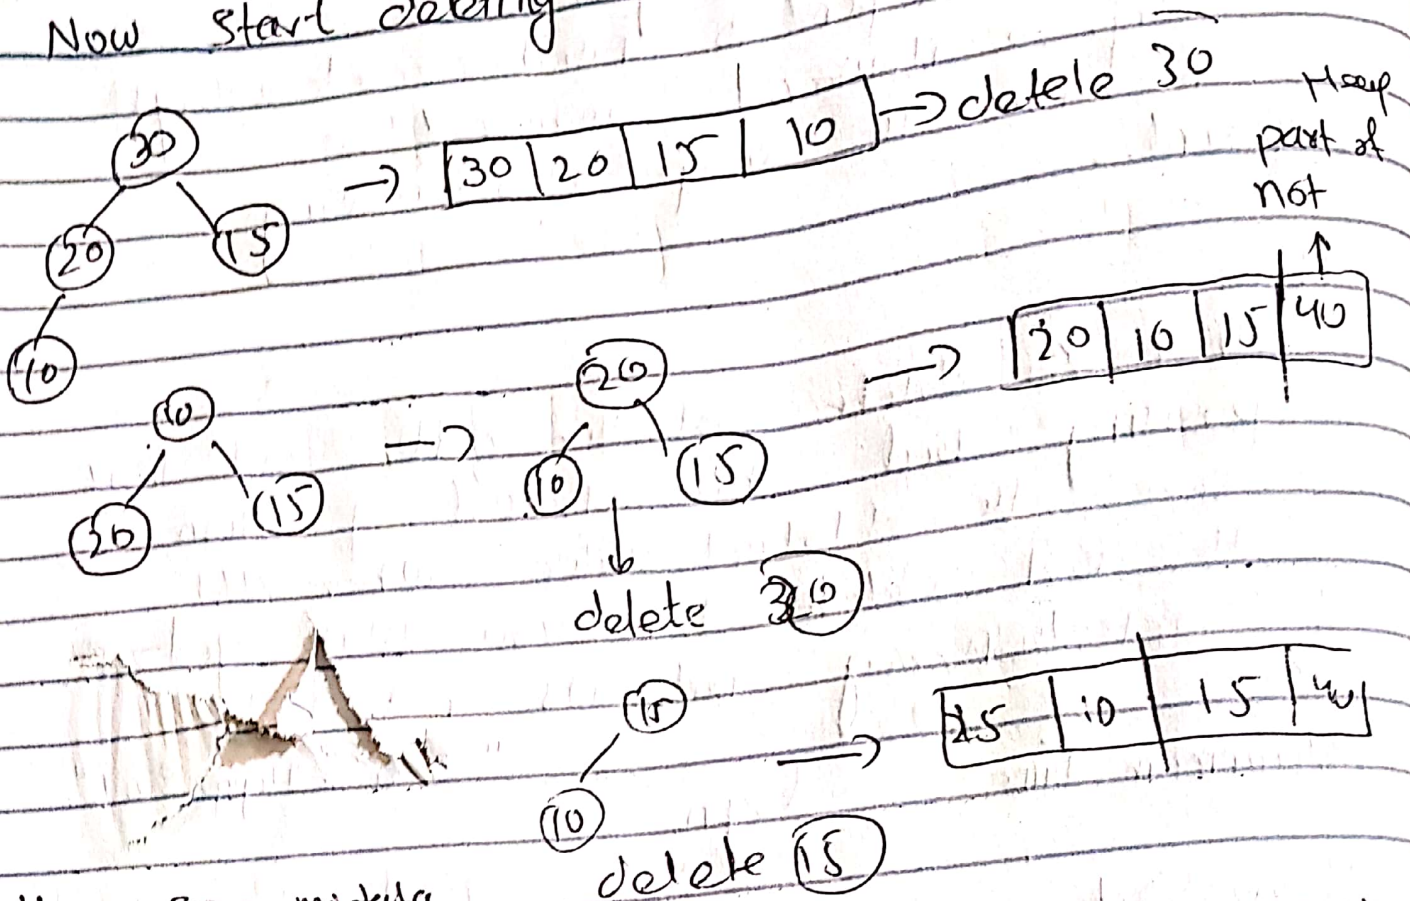 Now Start deleting
30
20
15
10
→ 30 20 15 10 → detele 30
Heap
part of
not
↑
10
20
15
→
20
10
15
→ 20 10 15 40
↓
delete 20
15
10
→ 15 10 15 40
delete 15